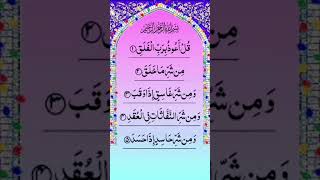 بِسْمِ اللّٰهِ الرَّحْمٰنِ الرَّحِيْمِ
قُلْ اَعُوْذُ بِرَبِّ الْفَلَقِ ۝١
مِنْ شَرِّ مَا خَلَقَ ۝٢
وَمِنْ شَرِّ غَاسِقٍ اِذَا وَقَبَ ۝٣
وَمِنْ شَرِّ النَّفّٰثٰتِ فِى الْعُقَدِ ۝٤
وَمِنْ شَرِّ حَاسِدٍ اِذَا حَسَدَ ۝٥